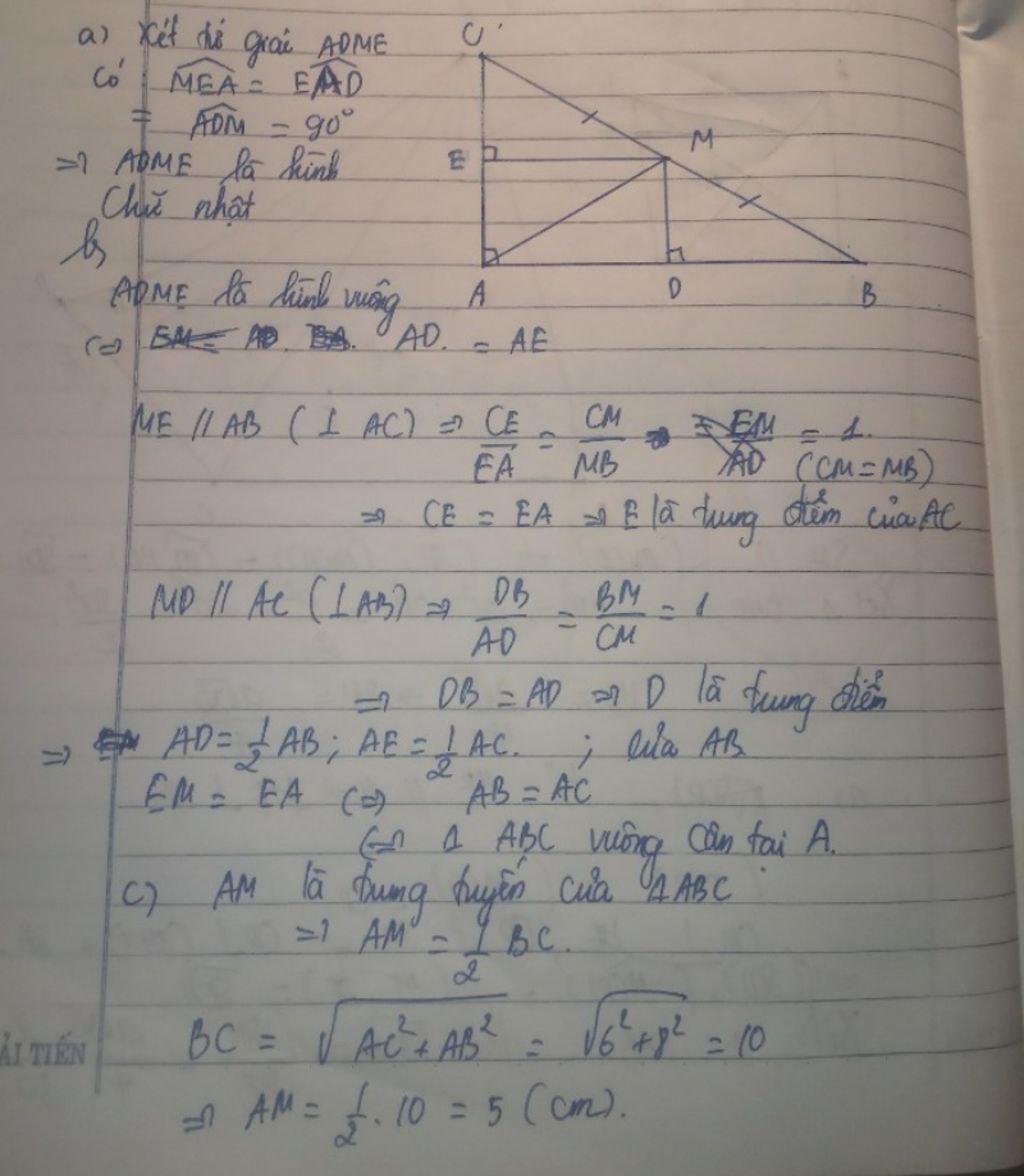 a) Xét tứ giác ADME
Có : MEA = EAD
= ADM = 90°
=> ADME là hình
Chữ nhật
b,
ADME là hình vuông
<=> AD. = AE
C
E
M
A
D
B
ME // AB ( ⊥ AC) => CE/EA = CM/MB = 1. (CM = MB)
=> CE = EA => E là trung điểm của AC
MD // AC (⊥ AB) => DB/AD = BM/CM = 1
=> DB = AD => D là trung điểm
của AB
=> AD = 1/2 AB ; AE = 1/2 AC. ;
EM = EA <=> AB = AC
<=> Δ ABC vuông cân tại A.
C) AM là trung tuyến của ΔABC
=> AM = 1/2 BC.
BC = √(AC² + AB²) = √(6² + 8²) = 10
=> AM = 1/2 . 10 = 5 (cm).
ẢI TIẾN